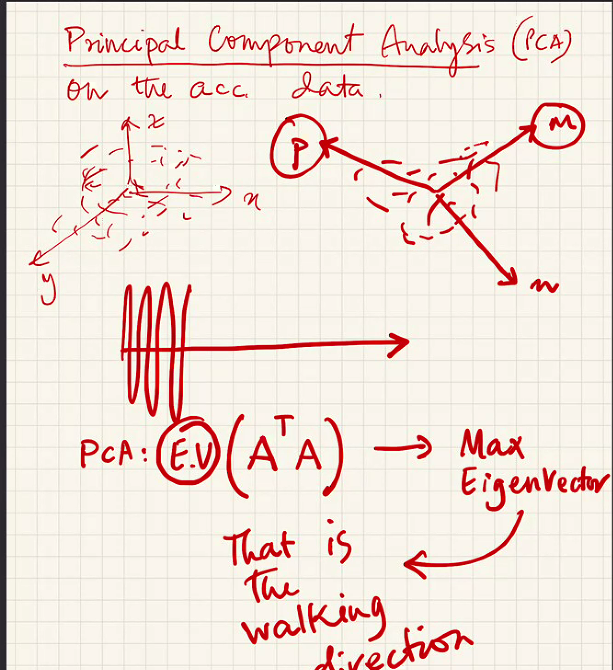 Principal Component Analysis (PCA)
on the acc. data.
z
x
y
P
M
n
PCA: E.V (AᵀA) → Max
Eigenvector
That is
the
walking
direction